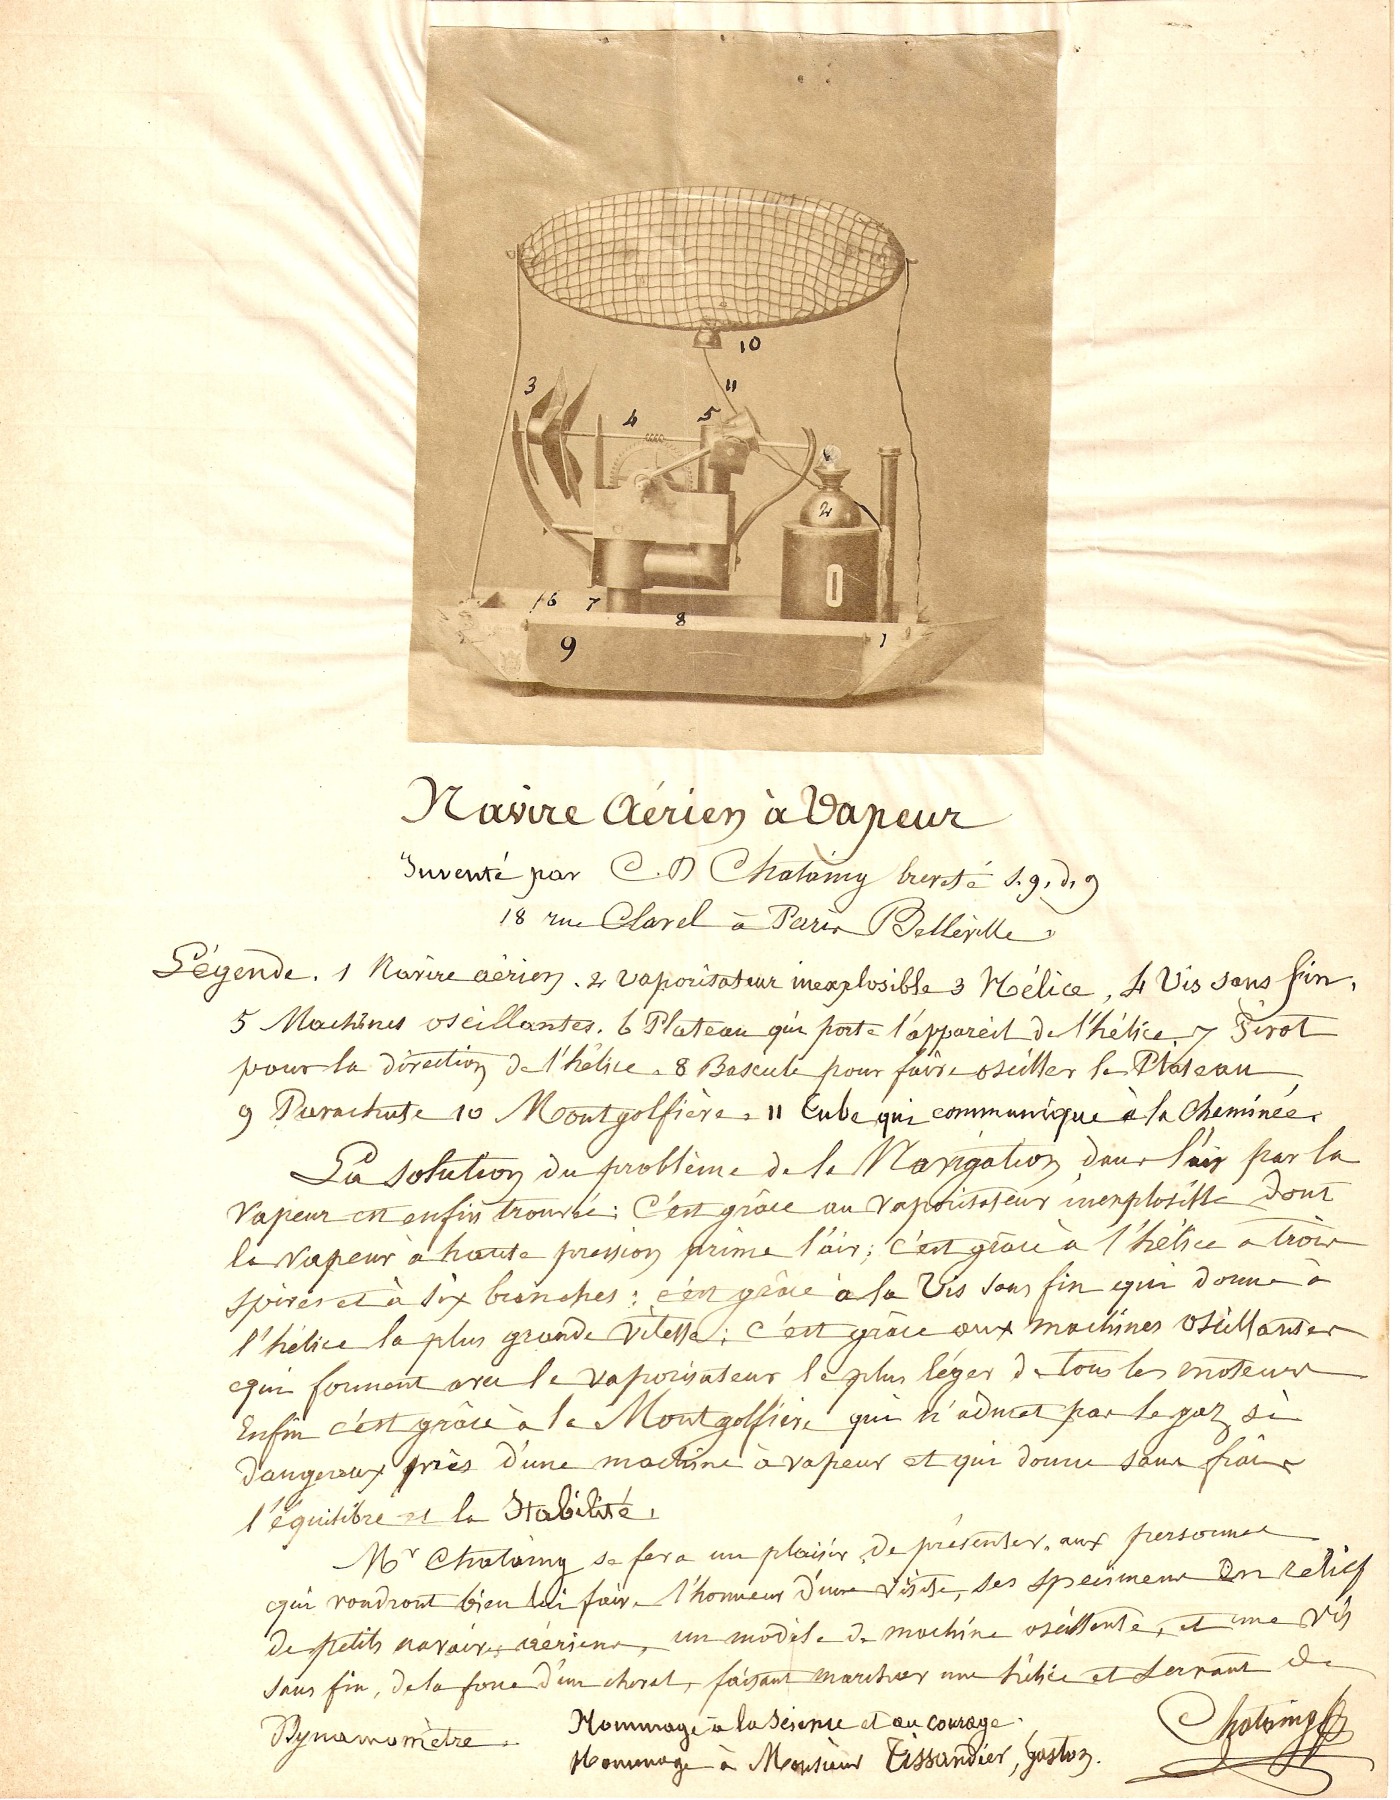 3
4
5
10
11
2
6
7
8
9
1
Navire Aérien à Vapeur
Inventé par C. D Chataing breveté s. g. d. g
18 rue Clavel à Paris Belleville.
Légende. 1 Navire aérien. 2 vaporisateur inexplosible 3 Hélice, 4 Vis sans fin,
5 Machines oscillantes. 6 Plateau qui porte l'appareil de l'hélice. 7 Pivot
pour la direction de l'hélice. 8 Bascule pour faire osciller le Plateau
9 Parachute 10 Montgolfière. 11 Tube qui communique à la cheminée.
La solution du problème de la Navigation dans l'air par la
vapeur est enfin trouvée: C'est grâce au vaporisateur inexplosible dont
la vapeur à haute pression prime l'air; c'est grâce à l'hélice a trois
spires et à six branches; c'est grâce à la Vis sans fin qui donne à
l'hélice la plus grande vitesse; c'est grâce aux machines oscillantes
qui forment avec le vaporisateur le plus léger de tous les moteurs
Enfin c'est grâce à la Montgolfière qui n'admet pas le gaz si
dangereux près d'une machine à vapeur et qui donne sans frais
l'équilibre et la Stabilité.
Mr Chataing se fera un plaisir de présenter, aux personnes
qui voudront bien lui faire l'honneur d'une visite, ses specimens en relief
de petits navires aériens, un modèle de machine oscillante, et une vis
sans fin, de la force d'un cheval, faisant marcher une hélice et servant de
Dynamomètre.
Hommage à la Science et au courage.
Hommage à Monsieur Tissandier, Gaston.
Chataing